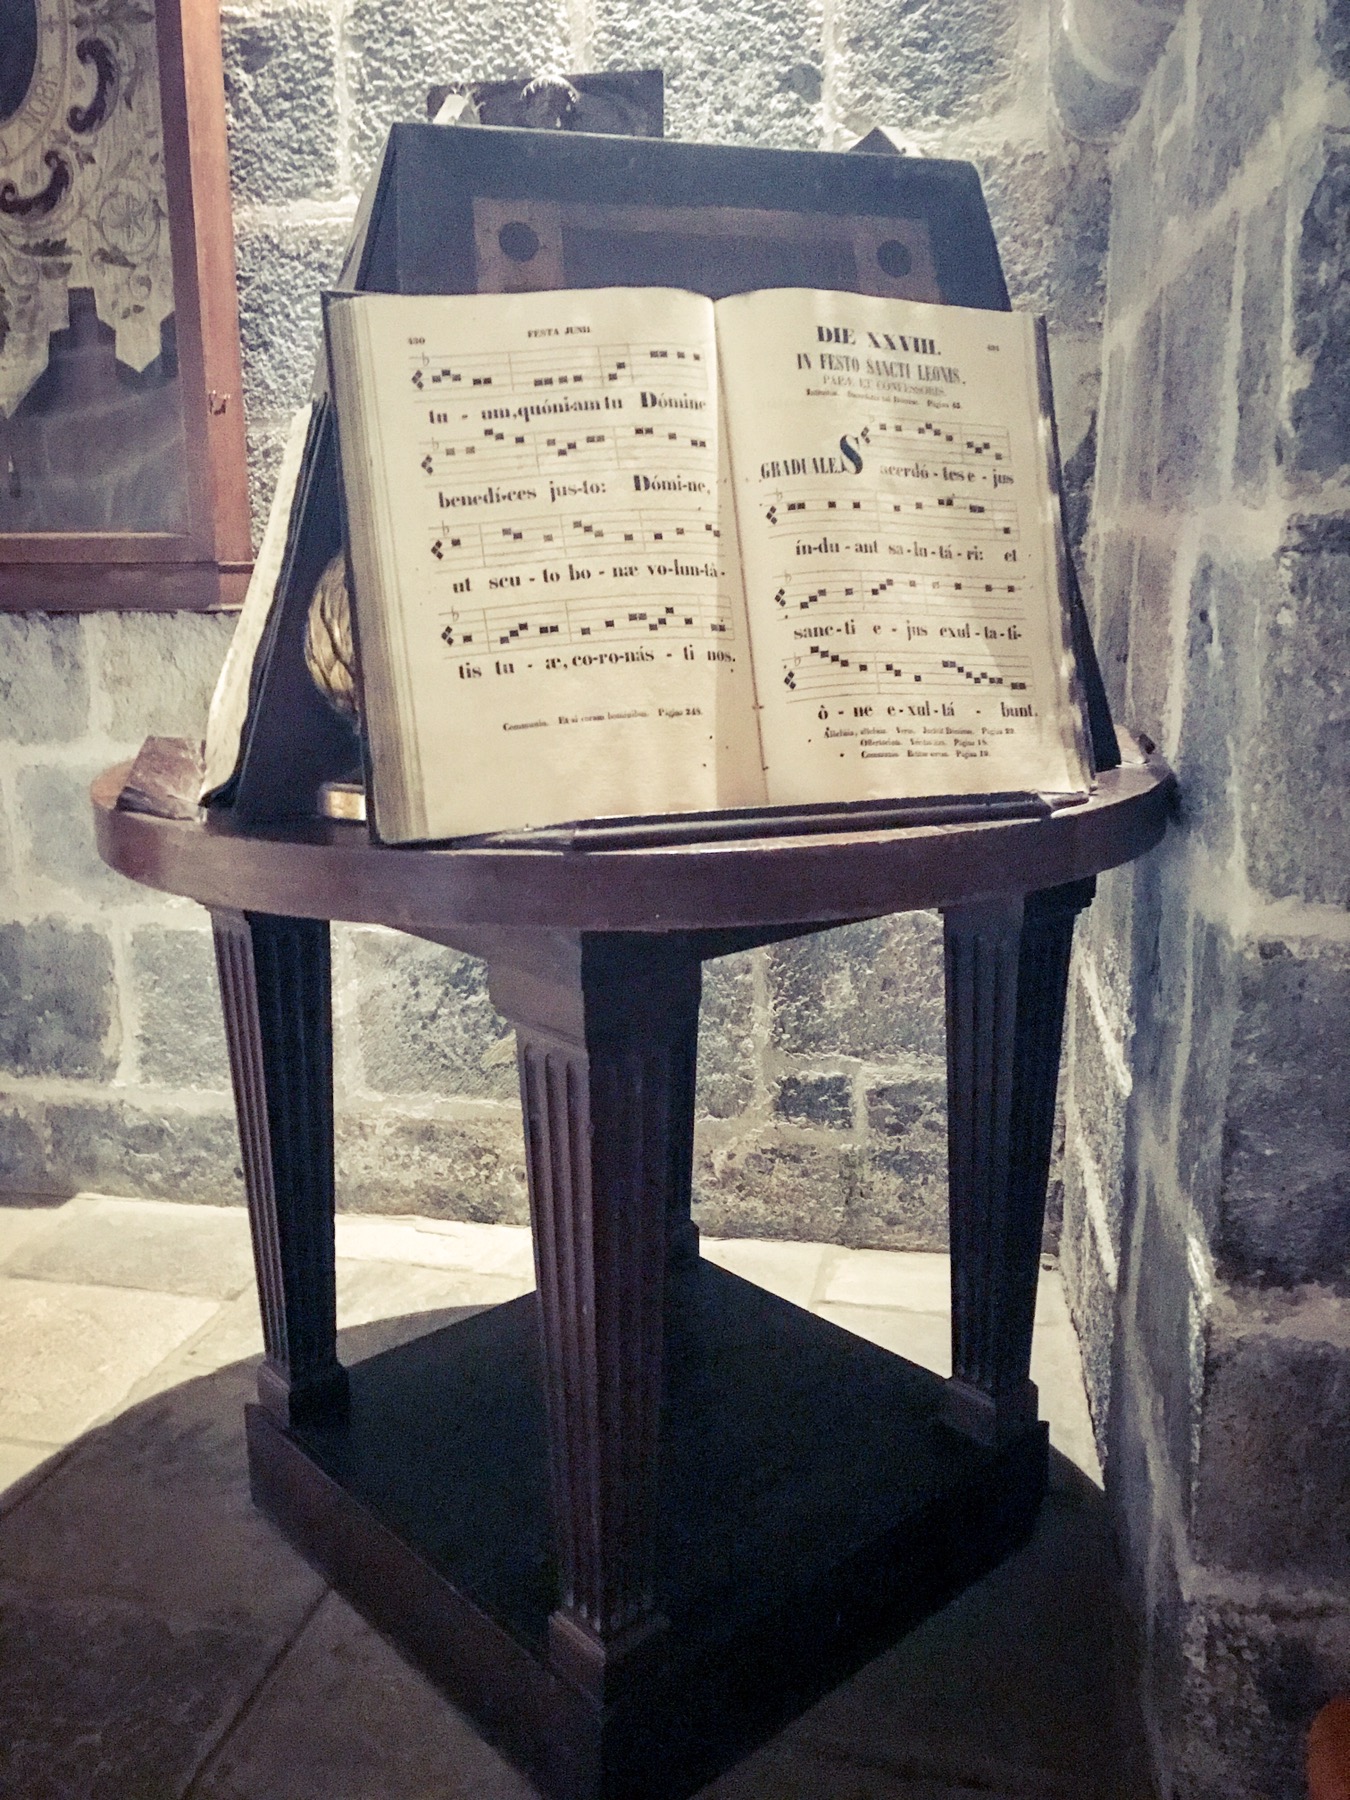 NOBIS
430 FESTA JUNII.
tu - um, quóniam tu Dómine
benedí-ces jus-to: Dómi-ne,
ut scu - to bo - næ vo-lun-tá-
tis tu - æ, co-ro-nás - ti nos.
Communio. Et si coram hominibus. Pagina 248.
DIE XXVIII. 431
IN FESTO SANCTI LEONIS.
PAPÆ ET CONFESSORIS.
Pagina
GRADUALE. S acerdó - tes e - jus
índu - ant sa - lu - tá - ri: et
sanc - ti e - jus exul - ta - ti-
ó - ne e - xul - tá - bunt.
Alleluia, alleluia. Versus. Pagina 22.
Offertorium. Veritas mea. Pagina 18.
Communio. Beatus servus. Pagina 19.